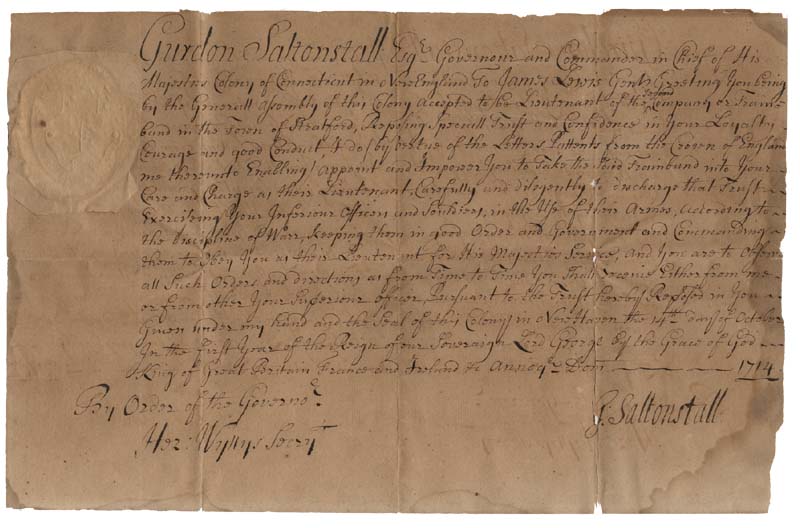 Gurdon Saltonstall Esqr. Governour and Commander in Chief of His
Majesties Colony of Connecticut in New England To James Lewis Gentn Greeting You being
by the Generall Assembly of this Colony Accepted to be Lieutenant of the Second Company or Train
band in the Town of Stratford, Reposing Speciall Trust and Confidence in Your Loyalty
Courage and good Conduct, I do by Vertue of the Letters Pattents from the Crown of England
me thereunto Enabling, Appoint and Impower You to Take the Said Trainband into Your
Care and Charge as their Lieutenant, Carefully and diligently to discharge that Trust
Exerciseing Your Inferiour Officers and Souldiers, in the Use of their Armes, according to
the discipline of Warr, keeping them in good Order and Government and Commanding
them to Obey You as their Lieutenant for His Majesties Service, and you are to Observe
all Such Orders and directions as from Time to Time You Shall receive Either from me
or from other Your Superiour officer, Pursuant to the Trust hereby Reposed in You
Given under my hand and the Seal of this Colony in New Haven the 14th day of October
In the first Year of the Reign of our Soveraign Lord George by the Grace of God
King of Great Britain France and Ireland &c Annoqe. Dom. 1714
By Order of the Governor.
G. Saltonstall
Hez: Wyllys Secry